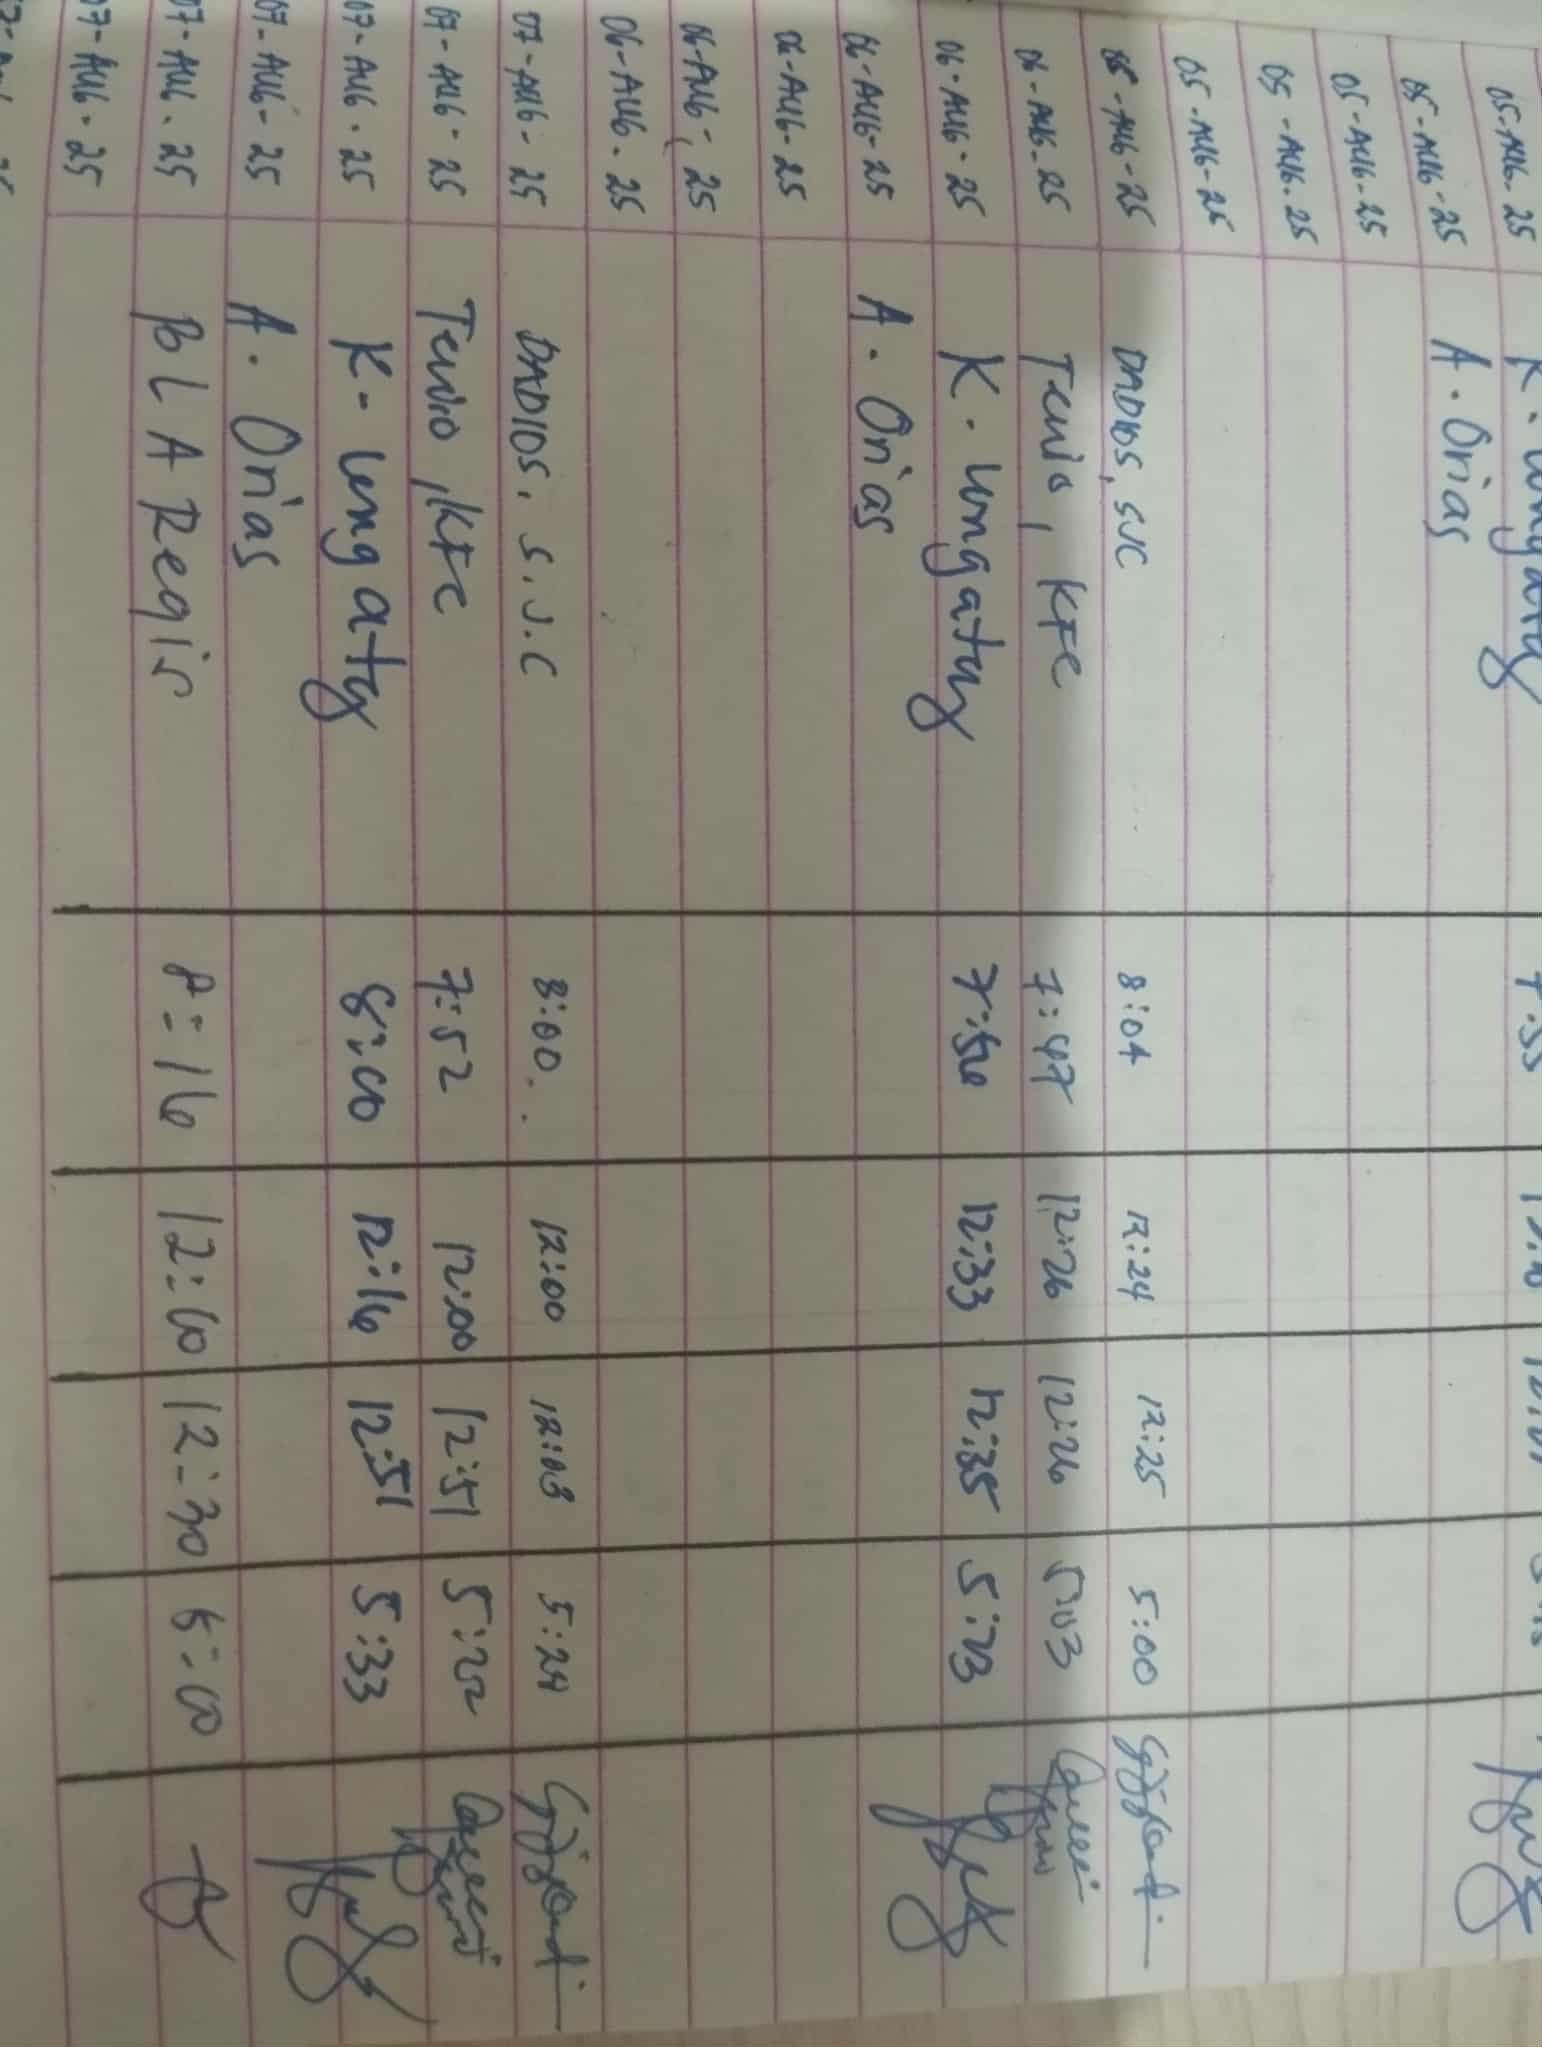 05-AUG-25 K. Lungaty
05-AUG-25 A. Orias
05-AUG-25
05-AUG-25
05-AUG-25
06-AUG-25 DADIOS, SJC 8:04 12:24 12:25 5:00
06-AUG-25 Tenio, KFC 7:47 12:26 12:26 5:03
06-AUG-25 K. Lungaty 12:33 12:35 5:23
06-AUG-25 A. Orias
06-AUG-25
06-AUG-25
06-AUG-25
07-AUG-25 DADIOS, S.J.C 8:00 12:00 12:03 5:29
07-AUG-25 Tenio, KFC 7:52 12:00 12:51 5:22
07-AUG-25 K- Lungaty 8:00 12:16 12:51 5:33
07-AUG-25 A. Orias
07-AUG-25 BLA Regis 8:16 12:00 12:30 5:00
07-AUG-25